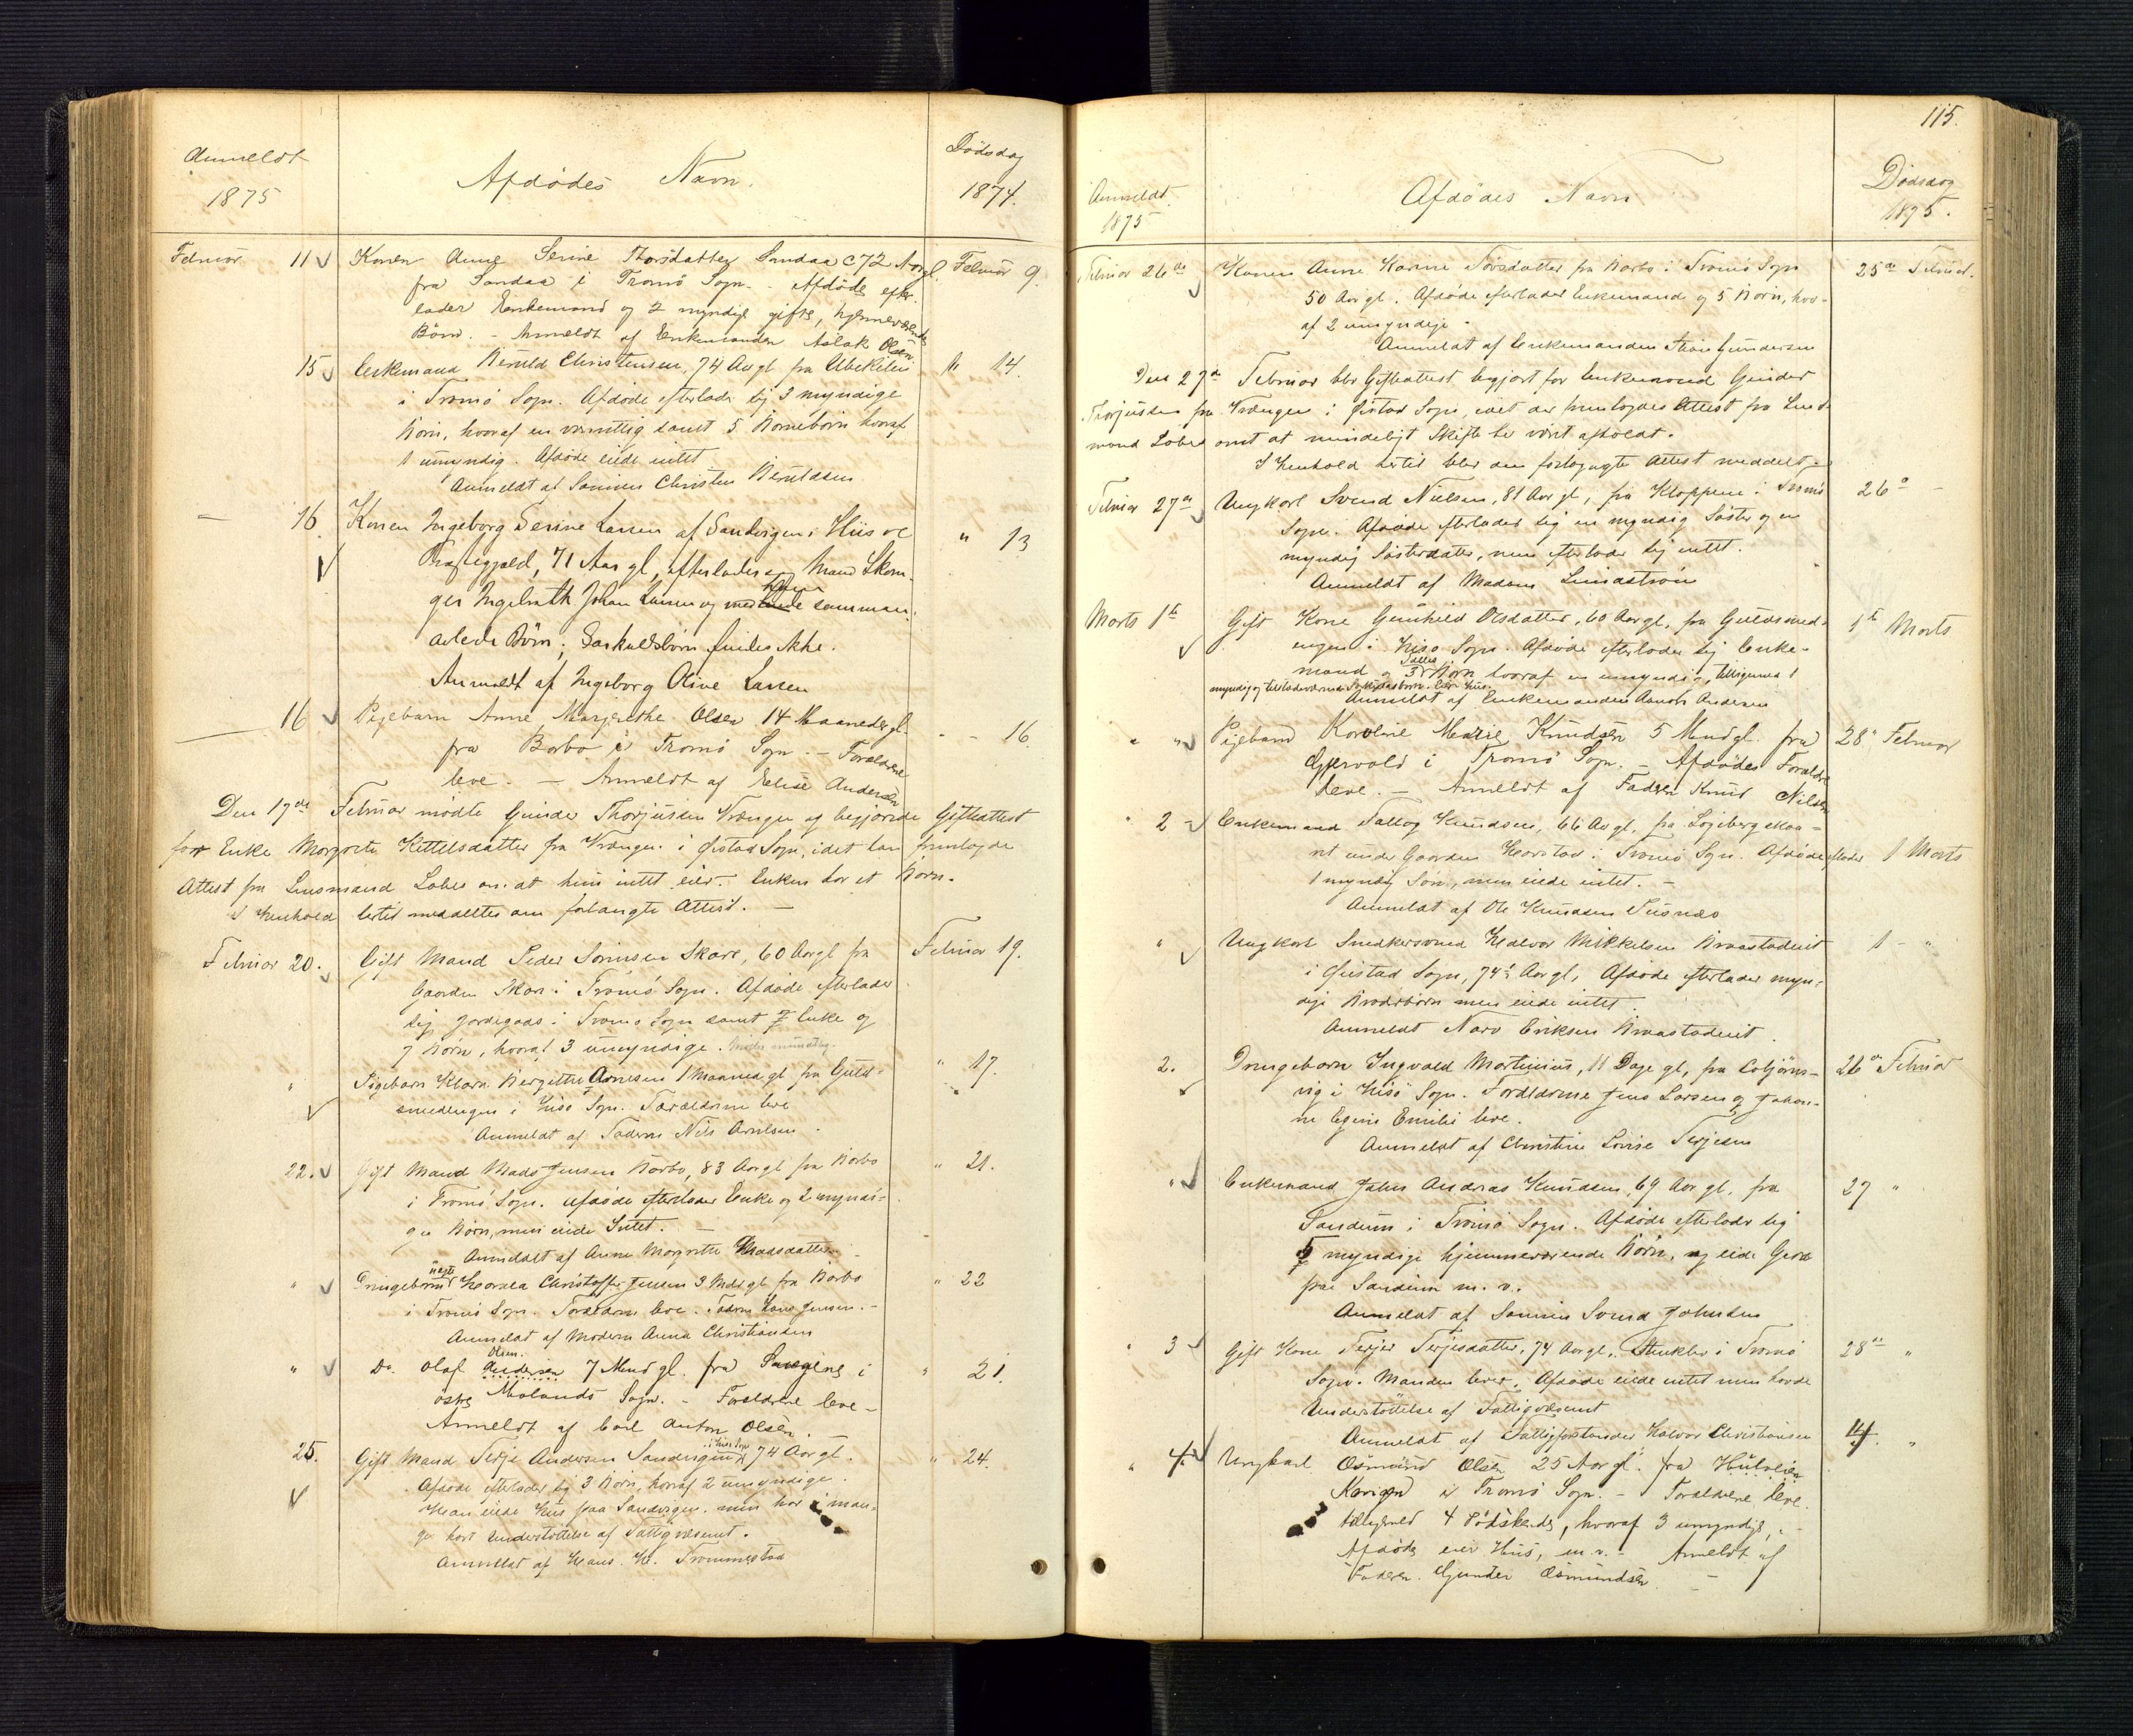 Anmeldt
1875
Afdødes Navn.
Dødsdag
1874.
Februar 11 Konen Anne Serine Thorsdatter Sandaa c 72 Aar gl. Februar 9.
fra Sandaa i Tromø Sogn. - Afdøde efter-
lader Enkemand og 2 myndige gifte, hjemmeværende
Børn. - Anmeldt af Enkemanden Aslak Olsen.
15 Enkemand Beruld Christensen, 74 Aar gl fra 14.
i Tromø Sogn. Afdøde efterlader sig 3 myndige
Børn, hvoraf en vanvittig samt 5 Børnebørn hvoraf
1 umyndig. Afdøde eiede intet
Anmeldt af Sønnen Christen Beruldsen
- 16. Konen Ingeborg Serine Larsen af Sandvigen i Hisø " 13
Præstegjæld, 71 Aar gl, efterlader sig Mand Skom-
ger Ingebreth Johan Larsen og med ham samman-
avlede Børn; Særkuldsbørn findes ikke.
Anmeldt af Ingeborg Olive Larsen
16 Pigebarn Anne Margrethe Olsen 14 Maaneder gl. - - 16.
fra Barbo i Tromø Sogn. - Forældrene
leve. - Anmeldt af Elise Andersen
Den 17de Februar mødte Gunder Thorjusen Vrængen og begjærede Gifteattest
for Enke Margrete Kittelsdatter fra Vrængen i Øistad Sogn, idet han fremlagde
Attest fra Lensmand Lober om at hun intet eier. Enken har et Barn.
I Henhold hertil meddeltes den forlangte Attest. -
Februar 20. Gift Mand Peder Sørensen Skare, 60 Aar gl fra Februar 19.
Gaarden Skare i Tromø Sogn. Afdøde efterlader
sig Jordegods i Tromø Sogn samt Enke og
7 Børn, hvoraf 3 umyndige.
" Pigebarn Klara Bergitte Arnesen 1 Maaned gl fra Guld- " 17.
smedengen i Hisø Sogn. Forældrene leve
Anmeldt af Faderen Nils Arnesen.
22. Gift Mand Mads Jensen Barbo, 83 Aar gl fra Barbo " 21.
i Tromø Sogn. Afdøde efterlader Enke og 2 myndi-
ge Børn, men eiede Intet. -
Anmeldt af Anne Margrethe Madsdatter -
" Drengebarn Christoffer Jensen 3 Mdr gl fra Barbo " 22
i Tromø Sogn. Forældrene leve. Faderen Hans Jensen. -
Anmeldt af Moderen Anna Christiansen
Olsen.
" Do Olaf Andersen 7 Mnd gl. fra i " 21.
østre Molands Sogn. - Forældrene leve -
Anmeldt af Carl Anton Olsen.
i Hisø Sogn
25. Gift Mand Terje Andersen Sandvigen 74 Aar gl. " 24.
Afdøde efterlader sig 3 Børn, hvoraf 2 umyndige.
Han eiede Hus paa Sandvigen men har i man-
ge havt Understøttelse af Fattigvæsenet.
Anmeldt af Hans. H. Trommestad
115.
Anmeldt.
1875
Afdødes Navn
Dødsdag
1875.
Februar 26de Konen Anne Karine Torsdatter fra Barbo i Tromø Sogn 25de Februar.
50 Aar gl. Afdøde efterlader Enkemand og 5 Børn, hvor-
af 2 umyndige.
Anmeldt af Enkemanden Gundersen
Den 27de Februar blev Gifteattest begjært for Enkemand Gunder
Thorjusen fra Vrængen i Øistad Sogn, idet der fremlagdes Attest fra Lens-
mand Lober omt at mindeligt Skifte har vært afholdt.
I Henhold hertil blev den forlangte Attest meddelt. -
Februar 27de Ungkarl Svend Nielsen, 81 Aar gl, fra Kloppene i Tromø 26de -
Sogn. Afdøde efterlader sig en myndig Søster og en
myndig Søsterdatter, men efterlader sig intet.
Anmeldt af Madam Lindstrøm
Marts 1te Gift Kone Gunhild Olsdatter, 60 Aar gl. fra Guldsmed- 1te Marts
engen i Hisø Sogn. Afdøde efterlader sig Enke-
mand og 3 Børn hvoraf en umyndig, tilligemed 1
myndig og tilstedeværende Særkuldsbarn. Eier Hus.
Anmeldt af Enkemanden Andersen
" " Pigebarn Karoline Marie Knudsen 5 Mnd gl. fra 28de Februar
Gjervold i Tromø Sogn. - Afdødes Forældre
leve. - Anmeldt af Faderen Knud Nilsen
" 2 - Enkemand Tallag Knudsen, 66 Aar gl. fra
under Gaarden Harstad i Tromø Sogn. Afdøde efterlader 1 Marts
1 myndig Søn, men eiede intet. -
Anmeldt af Ole Knudsen
" Ungkarl Snedkersvend Halvor Mikkelsen Braastadveit 1 - "
i Øiestad Sogn, 74½ Aar gl, Afdøde efterlader myn-
dige Broderbørn men eiede intet.
Anmeldt Eriksen Braastadveit.
2. Drengebarn Ingvald Martinius, 11 Dage gl, fra Colbjørns- 26de Februar
vig i Hisø Sogn. Forældrene Jens Larsen og Johan-
ne Emilie leve.
Anmeldt af Christine Lovise Terjesen
" Enkemand Jahn Andreas Knudsen, 69 Aar gl, fra 27 "
Sandum i Tromø Sogn. Afdøde efterlader sig
5 myndige hjemmeværende Børn, og eide Gaard
paa Sandum m. v.
Anmeldt af Sønnen Svend Jahnsen
" 3 Gift Kone Terjer Terjesdatter, 74 Aar gl, i Tromø 28de "
Sogn. Manden lever. Afdøde eiede intet men havde
Understøttelse af Fattigvæsenet
Anmeldt af Fattigforstander Halvor Christiansen
" 4. Ungkarl Osmund Olsen 25 Aar gl. fra "
i Tromø Sogn. - Forældrene leve.
tilligemed 4 Sødskende, hvoraf 3 umyndige, -
Afdøde eier Hus, m. v. - Anmeldt af
Faderen. Gunder Osmundsen. -